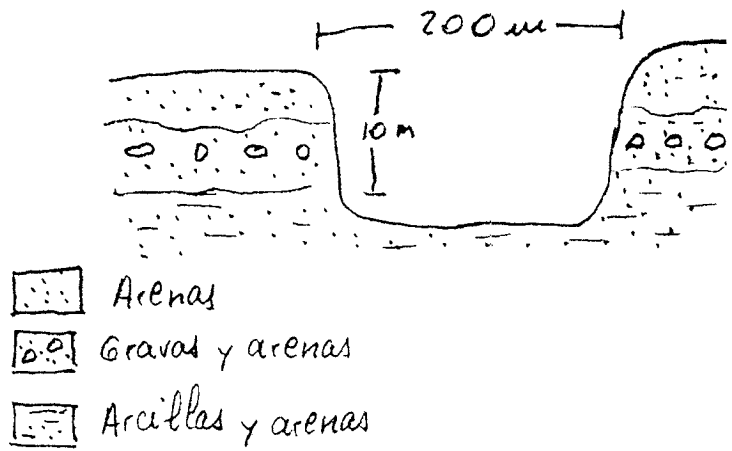 200 m
10 m
Arenas
Gravas y arenas
Arcillas y arenas